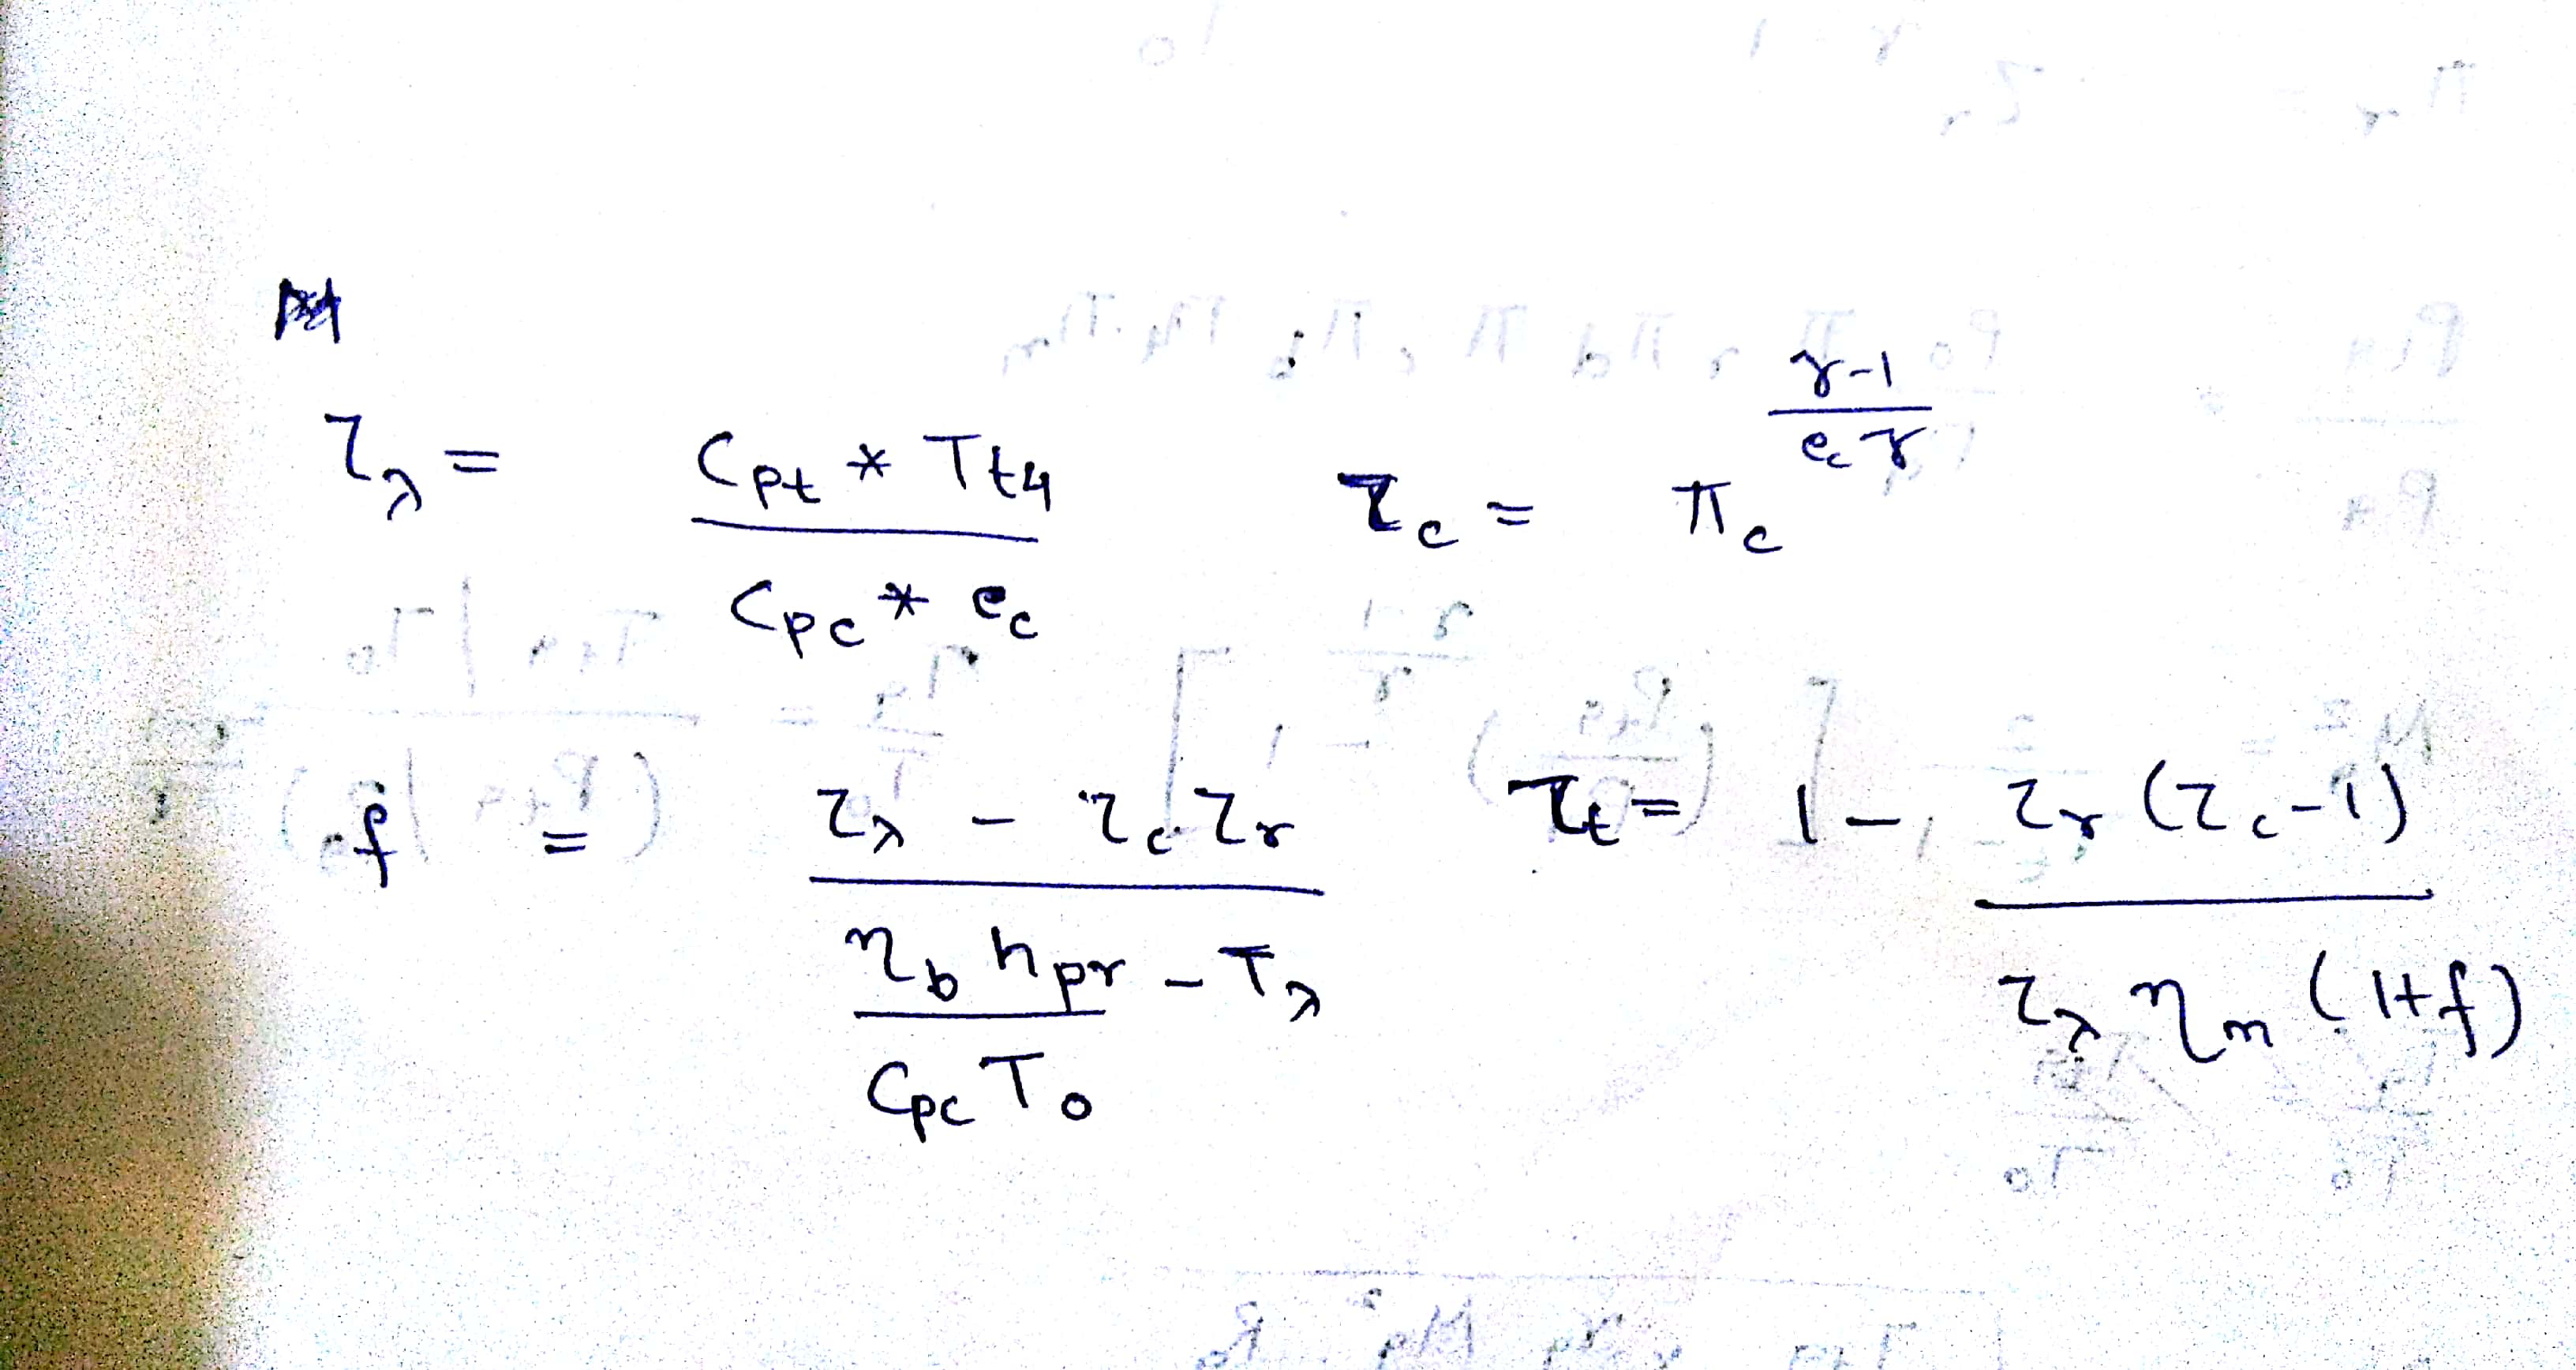 τ_λ = (C_pt * T_t4) / (C_pc * e_c)    τ_c = π_c^((γ-1)/(e_c γ))
f = (τ_λ - τ_c τ_r) / ((η_b h_pr)/(C_pc T_0) - T_λ)    τ_t = 1 - (τ_r (τ_c - 1)) / (τ_λ η_m (1+f))